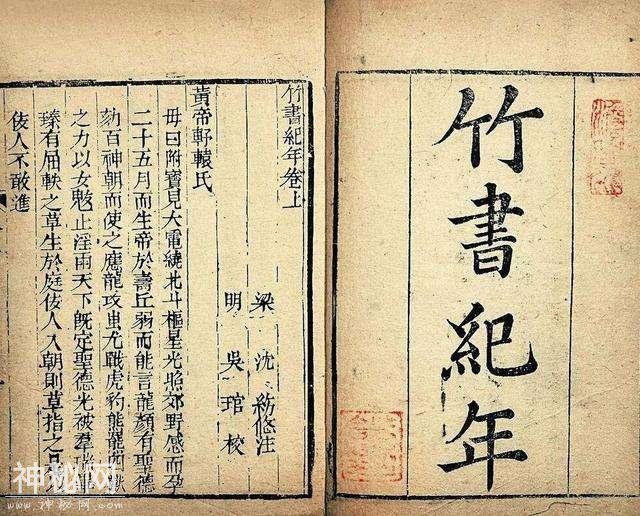 竹書紀年
竹書紀年卷上
梁 沈 約 注
明 吳 琯 校
黃帝軒轅氏
母曰附寶見大電繞北斗樞星光照郊野感而孕
二十五月而生帝於壽丘弱而能言龍顏有聖德
劾百神朝而使之應龍攻蚩尤戰虎豹熊羆四獸
之力以女魃止淫雨天下既定聖德光被羣瑞畢
臻有屈軼之草生於庭佞人入朝則草指之是
佞人不敢進
神秘网
www.神秘网.com